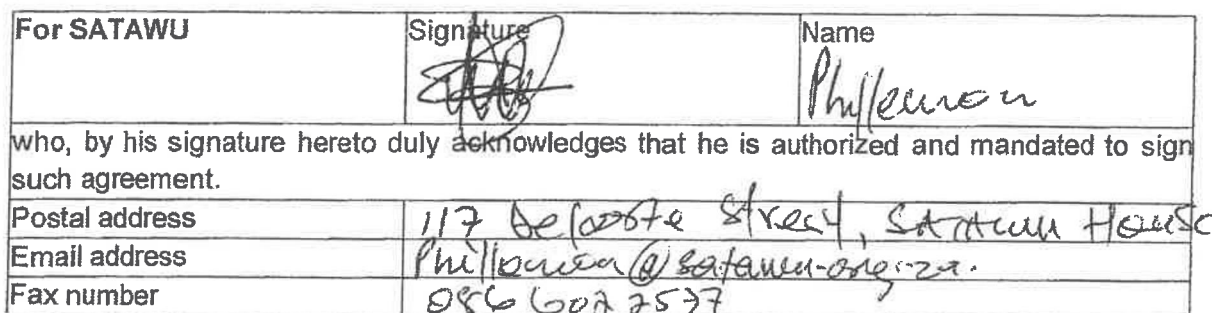 For SATAWU Signature Name
Phillemon
who, by his signature hereto duly acknowledges that he is authorized and mandated to sign
such agreement.
Postal address 117 Street, SATAWU House
Email address Phillemon@satawu.org.za.
Fax number 086 602 2537